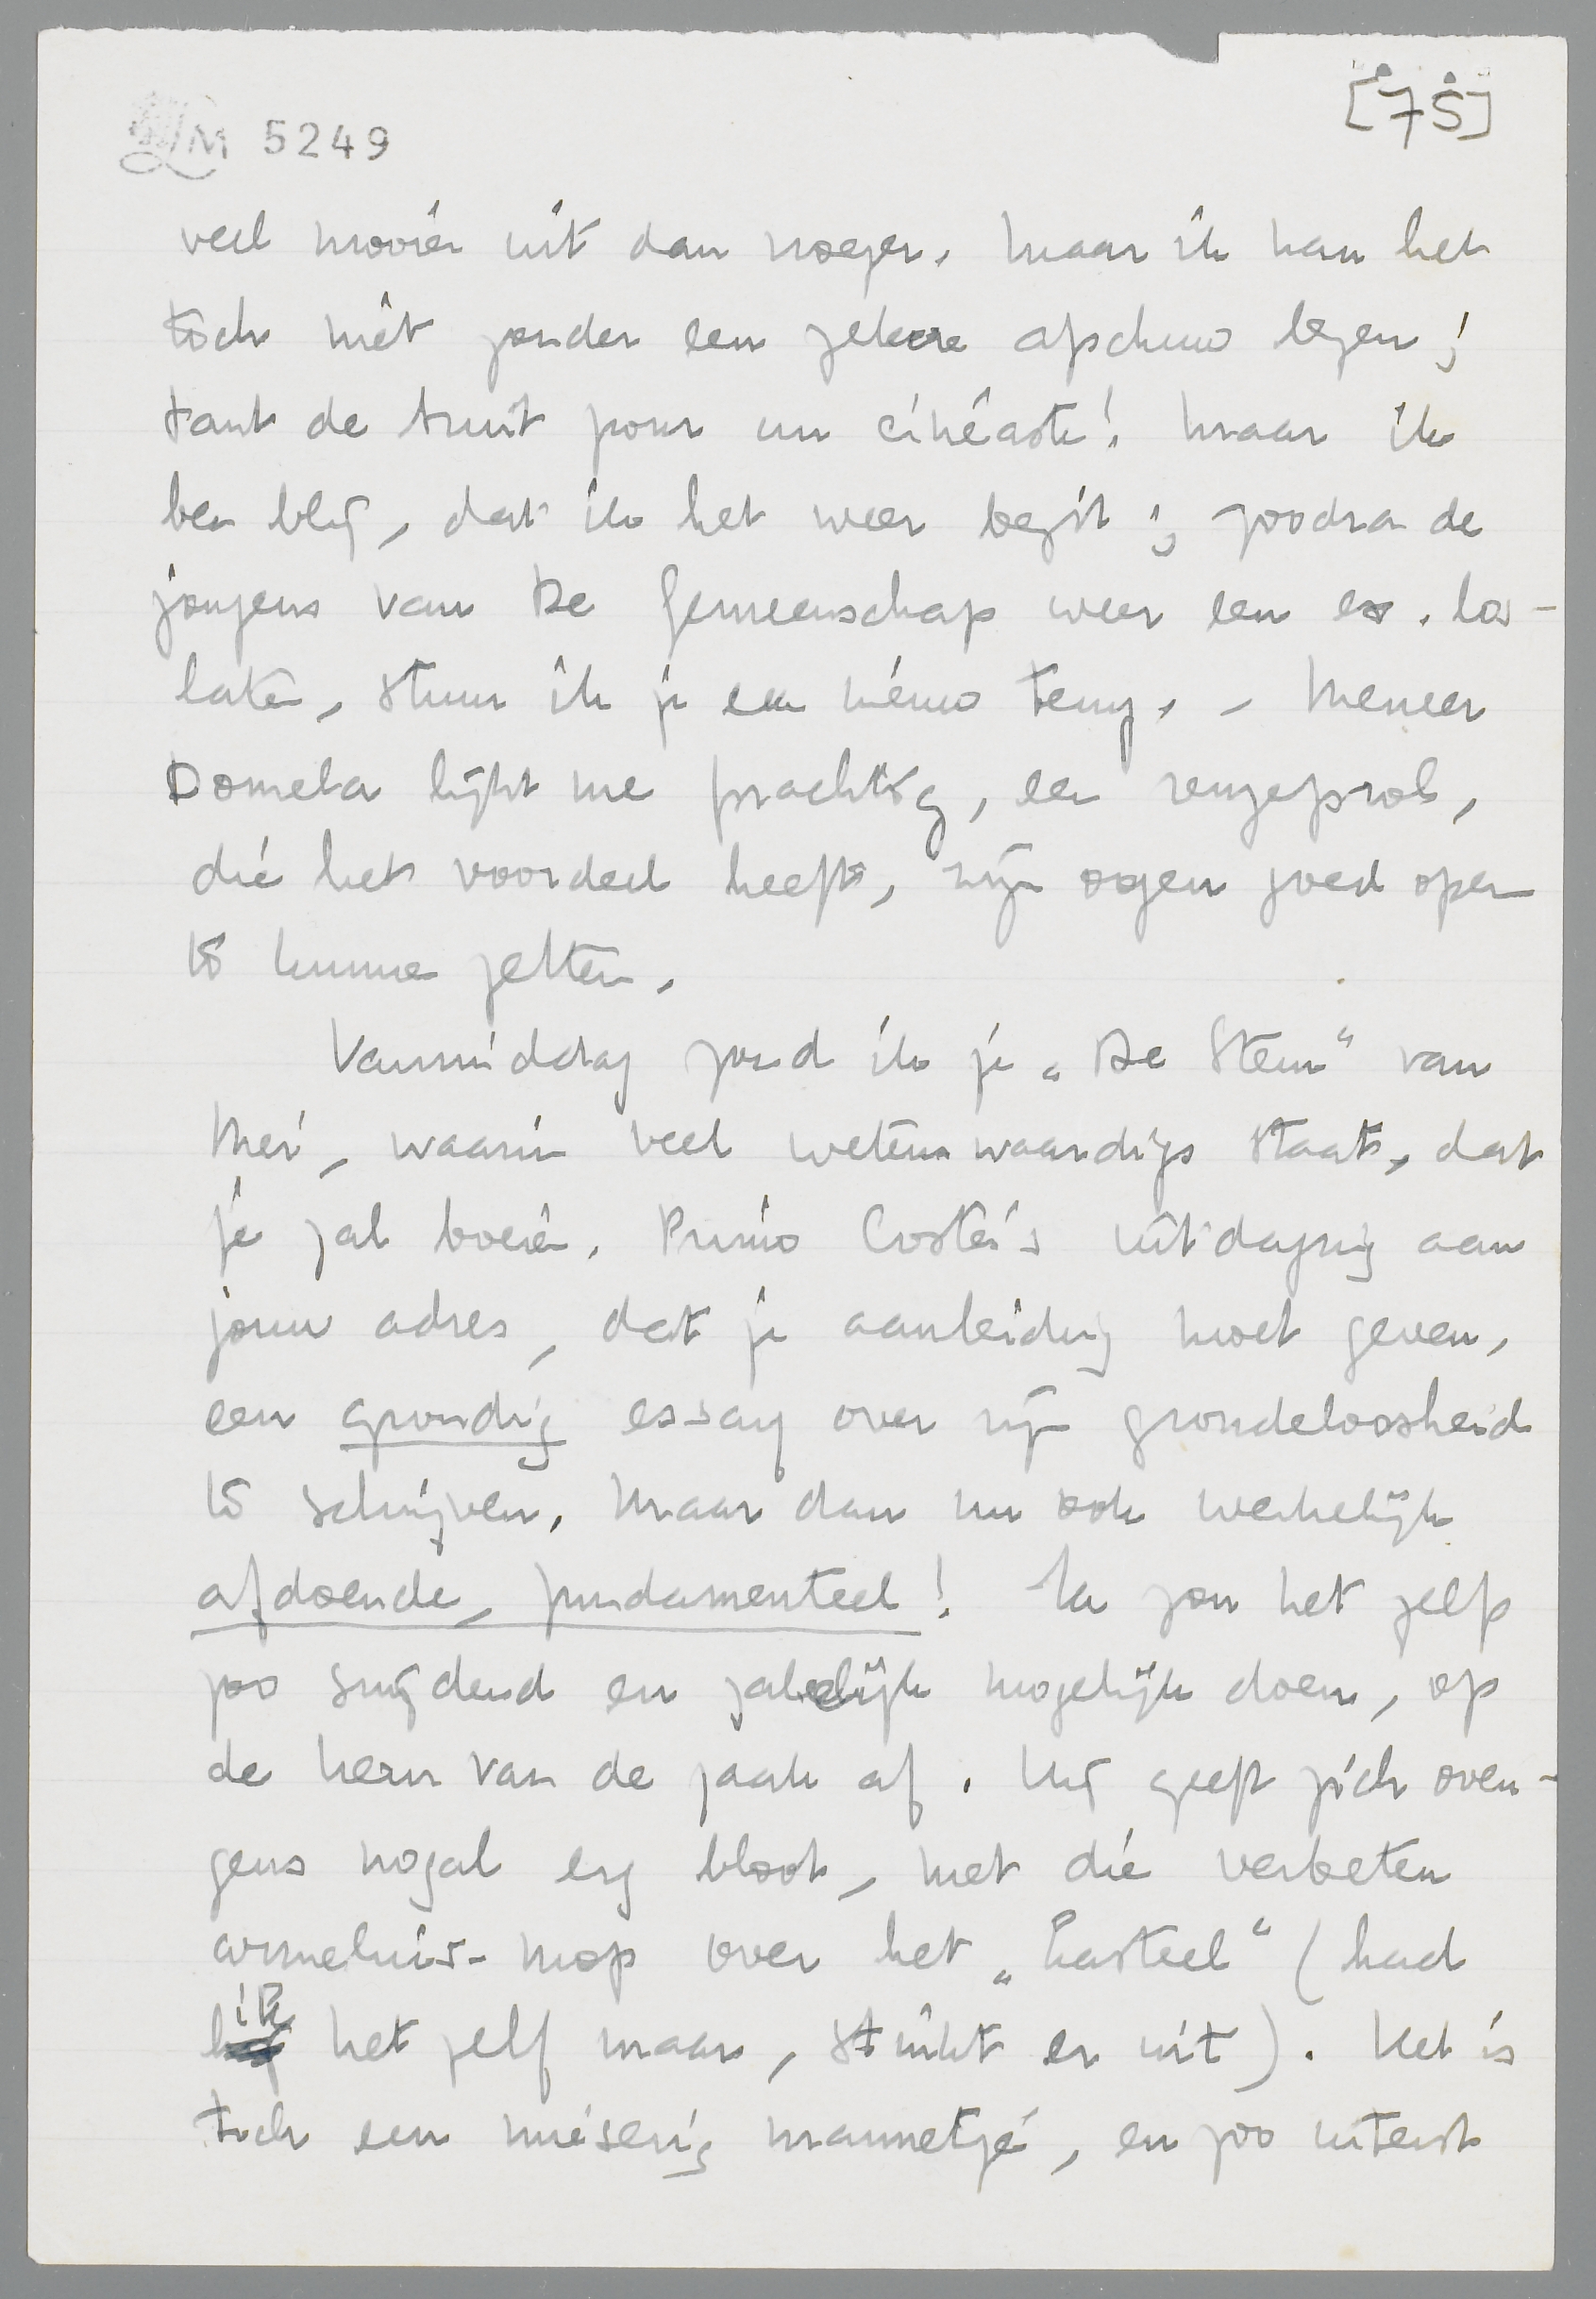 LM 5249
[75]
veel mooier uit dan vroeger. Maar ik kan het
toch niet zonder een zekere afschuw lezen;
tant de bruit pour un cinéaste! Maar ik
ben blij, dat ik het weer bezit; zoodra de
jongens van De Gemeenschap weer een ex. los-
laten, stuur ik je een nieuw terug. – Meneer
Domela lijkt me prachtig, een reuzeprol,
die het voordeel heeft, zijn oogen goed open
te kunnen zetten.
Vanmiddag zond ik je „De Stem" van
Mei, waarin veel wetenswaardigs staat, dat
je zal boeien. Primo Coster's uitdaging aan
jouw adres, dat je aanleiding moet geven,
een grondig essay over zijn grondeloosheid
te schrijven. Maar dan nu ook werkelijk
afdoende, fundamenteel! Ik zou het zelf
zoo snijdend en zakelijk mogelijk doen, op
de kern van de zaak af. Hij geeft zich overi-
gens nogal erg bloot, met die verbeten
armeluis-mop over het „Kasteel" (had
ik het zelf maar, stinkt er uit). Het is
toch een miserig mannetje, en zoo uiterst